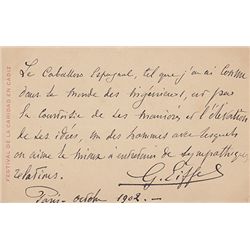 Le Caballero Espagnol, tel que j'en ai connu
dans le monde des Ingénieurs, est par
la courtoisie de ses manières et l'élévation
de ses idées, un des hommes avec lesquels
on aime le mieux à entretenir de sympathiques
relations.
G. Eiffel
Paris - octobre 1902. —
FESTIVAL DE LA CARIDAD EN CADIZ